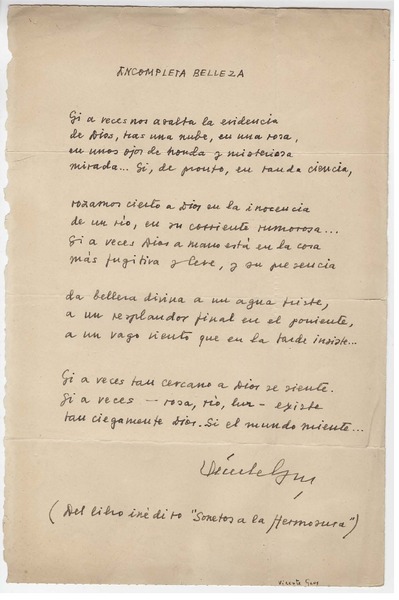 INCOMPLETA BELLEZA
Si a veces nos asalta la evidencia
de Dios, tras una nube, en una rosa,
en unos ojos de honda y misteriosa
mirada... Si, de pronto, en tanda ciencia,
rozamos cierto a Dios en la inocencia
de un río, en su corriente rumorosa...
Si a veces Dios a mano está en la cosa
más fugitiva y leve, y su presencia
da belleza divina a un agua triste,
a un resplandor final en el poniente,
a un vago viento que en la tarde insiste...
Si a veces tan cercano a Dios se siente.
Si a veces — rosa, río, luz — existe
tan ciegamente Dios. Si el mundo miente...
Vicente Gaos
(Del libro inédito "Sonetos a la Hermosura")
Vicente Gaos